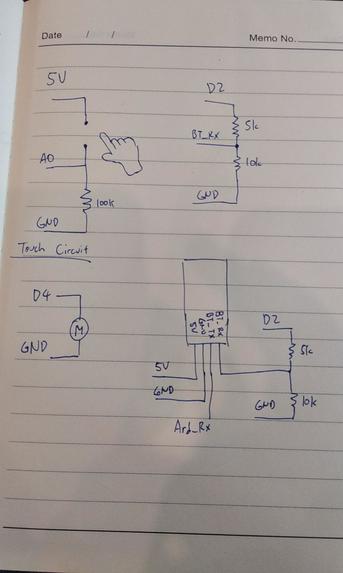 Date / /
Memo No.
5V
A0
100k
GND
Touch Circuit
D2
5k
BT_Rx
10k
GND
D4
M
GND
BT_Rx
BT_Tx
GND
5V
5V
GND
Ard_Rx
D2
5k
GND
10k